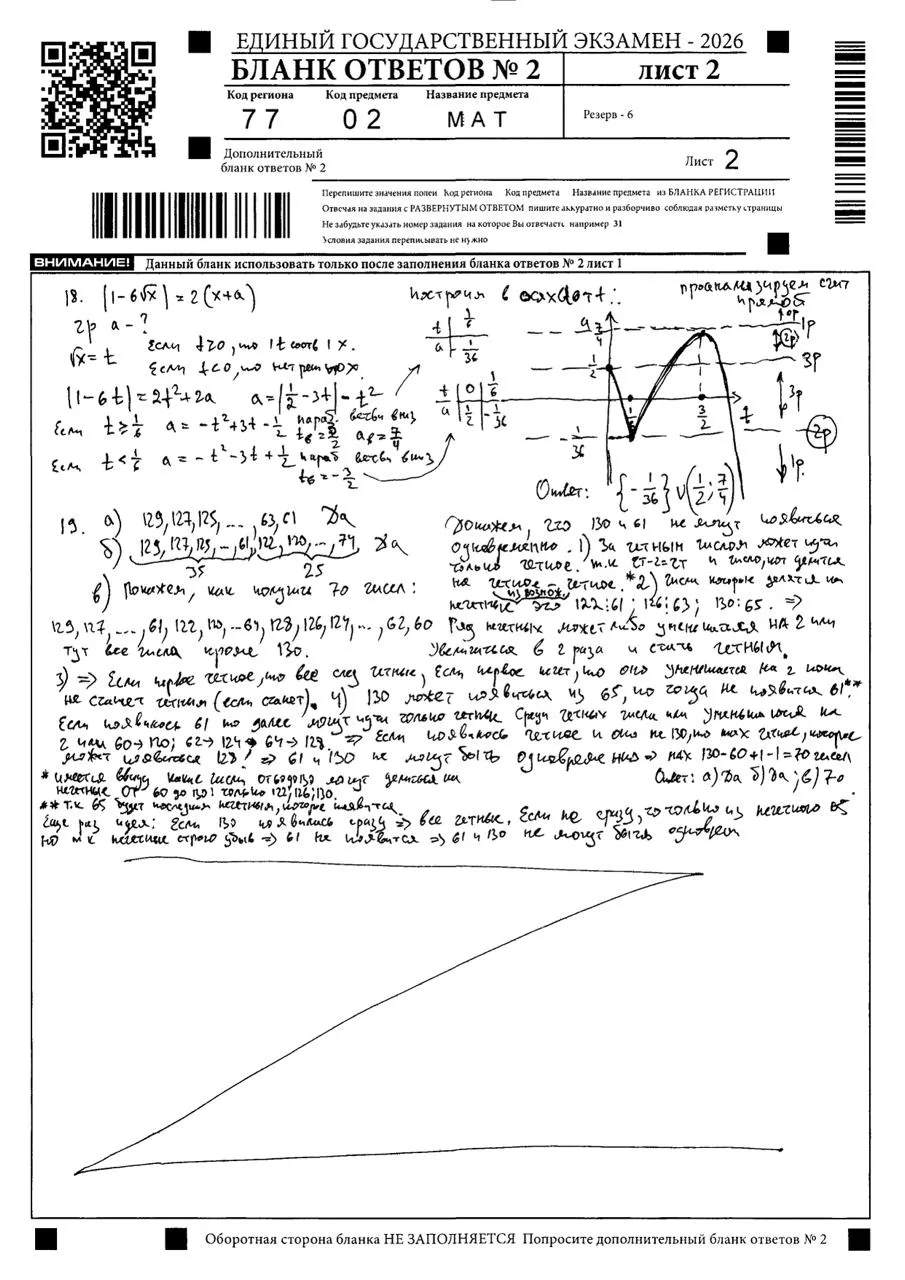 ЕДИНЫЙ ГОСУДАРСТВЕННЫЙ ЭКЗАМЕН - 2026
БЛАНК ОТВЕТОВ № 2
лист 2
Код региона Код предмета Название предмета
77 02 МАТ
Резерв - 6
Дополнительный
бланк ответов № 2
Лист 2
Перепишите значения полей Код региона Код предмета Название предмета из БЛАНКА РЕГИСТРАЦИИ
Отвечая на задания с РАЗВЕРНУТЫМ ОТВЕТОМ пишите аккуратно и разборчиво соблюдая разметку страницы
Не забудьте указать номер задания на которое Вы отвечаете например 31
Условия задания переписывать не нужно
ВНИМАНИЕ! Данный бланк использовать только после заполнения бланка ответов № 2 лист 1
18. |1-6√x| = 2(x+a)
2р a - ?
√x = t
Если t≥0, то 1t соотв 1x.
Если t<0, то нет реш х.
|1-6t| = 2t²+2a a = |1/2 - 3t| - t²
Если t ≥ 1/6 a = -t²+3t-1/2 параб. ветви вниз
aв = 7/4
Если t < 1/6 a = -t²-3t+1/2 параб ветви вниз
tв = -3/2
Построим в осях a от t:
t 1/6
a -1/36
t 0 1/6
a 1/2 -1/36
проанализируем счит
прямой
a 7/4
1/2
-1/36
1/6
3/2
t
0р
1р
2р
3р
3р
2р
1р.
Ответ: {-1/36} ∪ (1/2; 7/4)
19. а) 129, 127, 125, ..., 63, 61 Да
б) 129, 127, 125, ..., 61, 122, 120, ..., 74 Да
35 25
в) Покажем, как получить 70 чисел:
129, 127, ..., 61, 122, 120, ...64, 128, 126, 124, ..., 62, 60
тут все числа кроме 130.
Докажем, что 130 и 61 не могут появиться
одновременно. 1) За четным числом может идти
только четное. т.к 2т-2=2т и число, кот делится
на четное - четное. *2) Числа которые делятся на
нечетные это 122:61; 126:63; 130:65. ⇒
Ряд нечетных может либо уменьшаться НА 2 или
Увеличиться в 2 раза и стать четным.
3) ⇒ Если первое четное, то все след четные, Если первое нечет, то оно уменьшается на 2 пока
не станет четным (если станет). 4) 130 может появиться из 65, но тогда не появится 61**
Если появилось 61 то далее могут идти только четные Среди четных числа или уменьшаются на
2 или 60→120; 62→124 64→128. ⇒ Если появилось четное и оно не 130, то мах четное, которое
может появиться 128! ⇒ 61 и 130 не могут быть одновременно ⇒ мах 130-60+1-1=70 чисел
Ответ: а) Да б) Да; в) 70
* имеется ввиду какие числа от 60 до 130 могут делиться на
нечетные От 60 до 130! только 122; 126; 130.
** т.к 65 будет последним нечетным, которое появится.
Еще раз идея: Если 130 появилось сразу ⇒ все четные, Если не сразу, то только из нечетного 65
но т к нечетные строго убыв ⇒ 61 не появится ⇒ 61 и 130 не могут быть одноврем
Оборотная сторона бланка НЕ ЗАПОЛНЯЕТСЯ Попросите дополнительный бланк ответов № 2